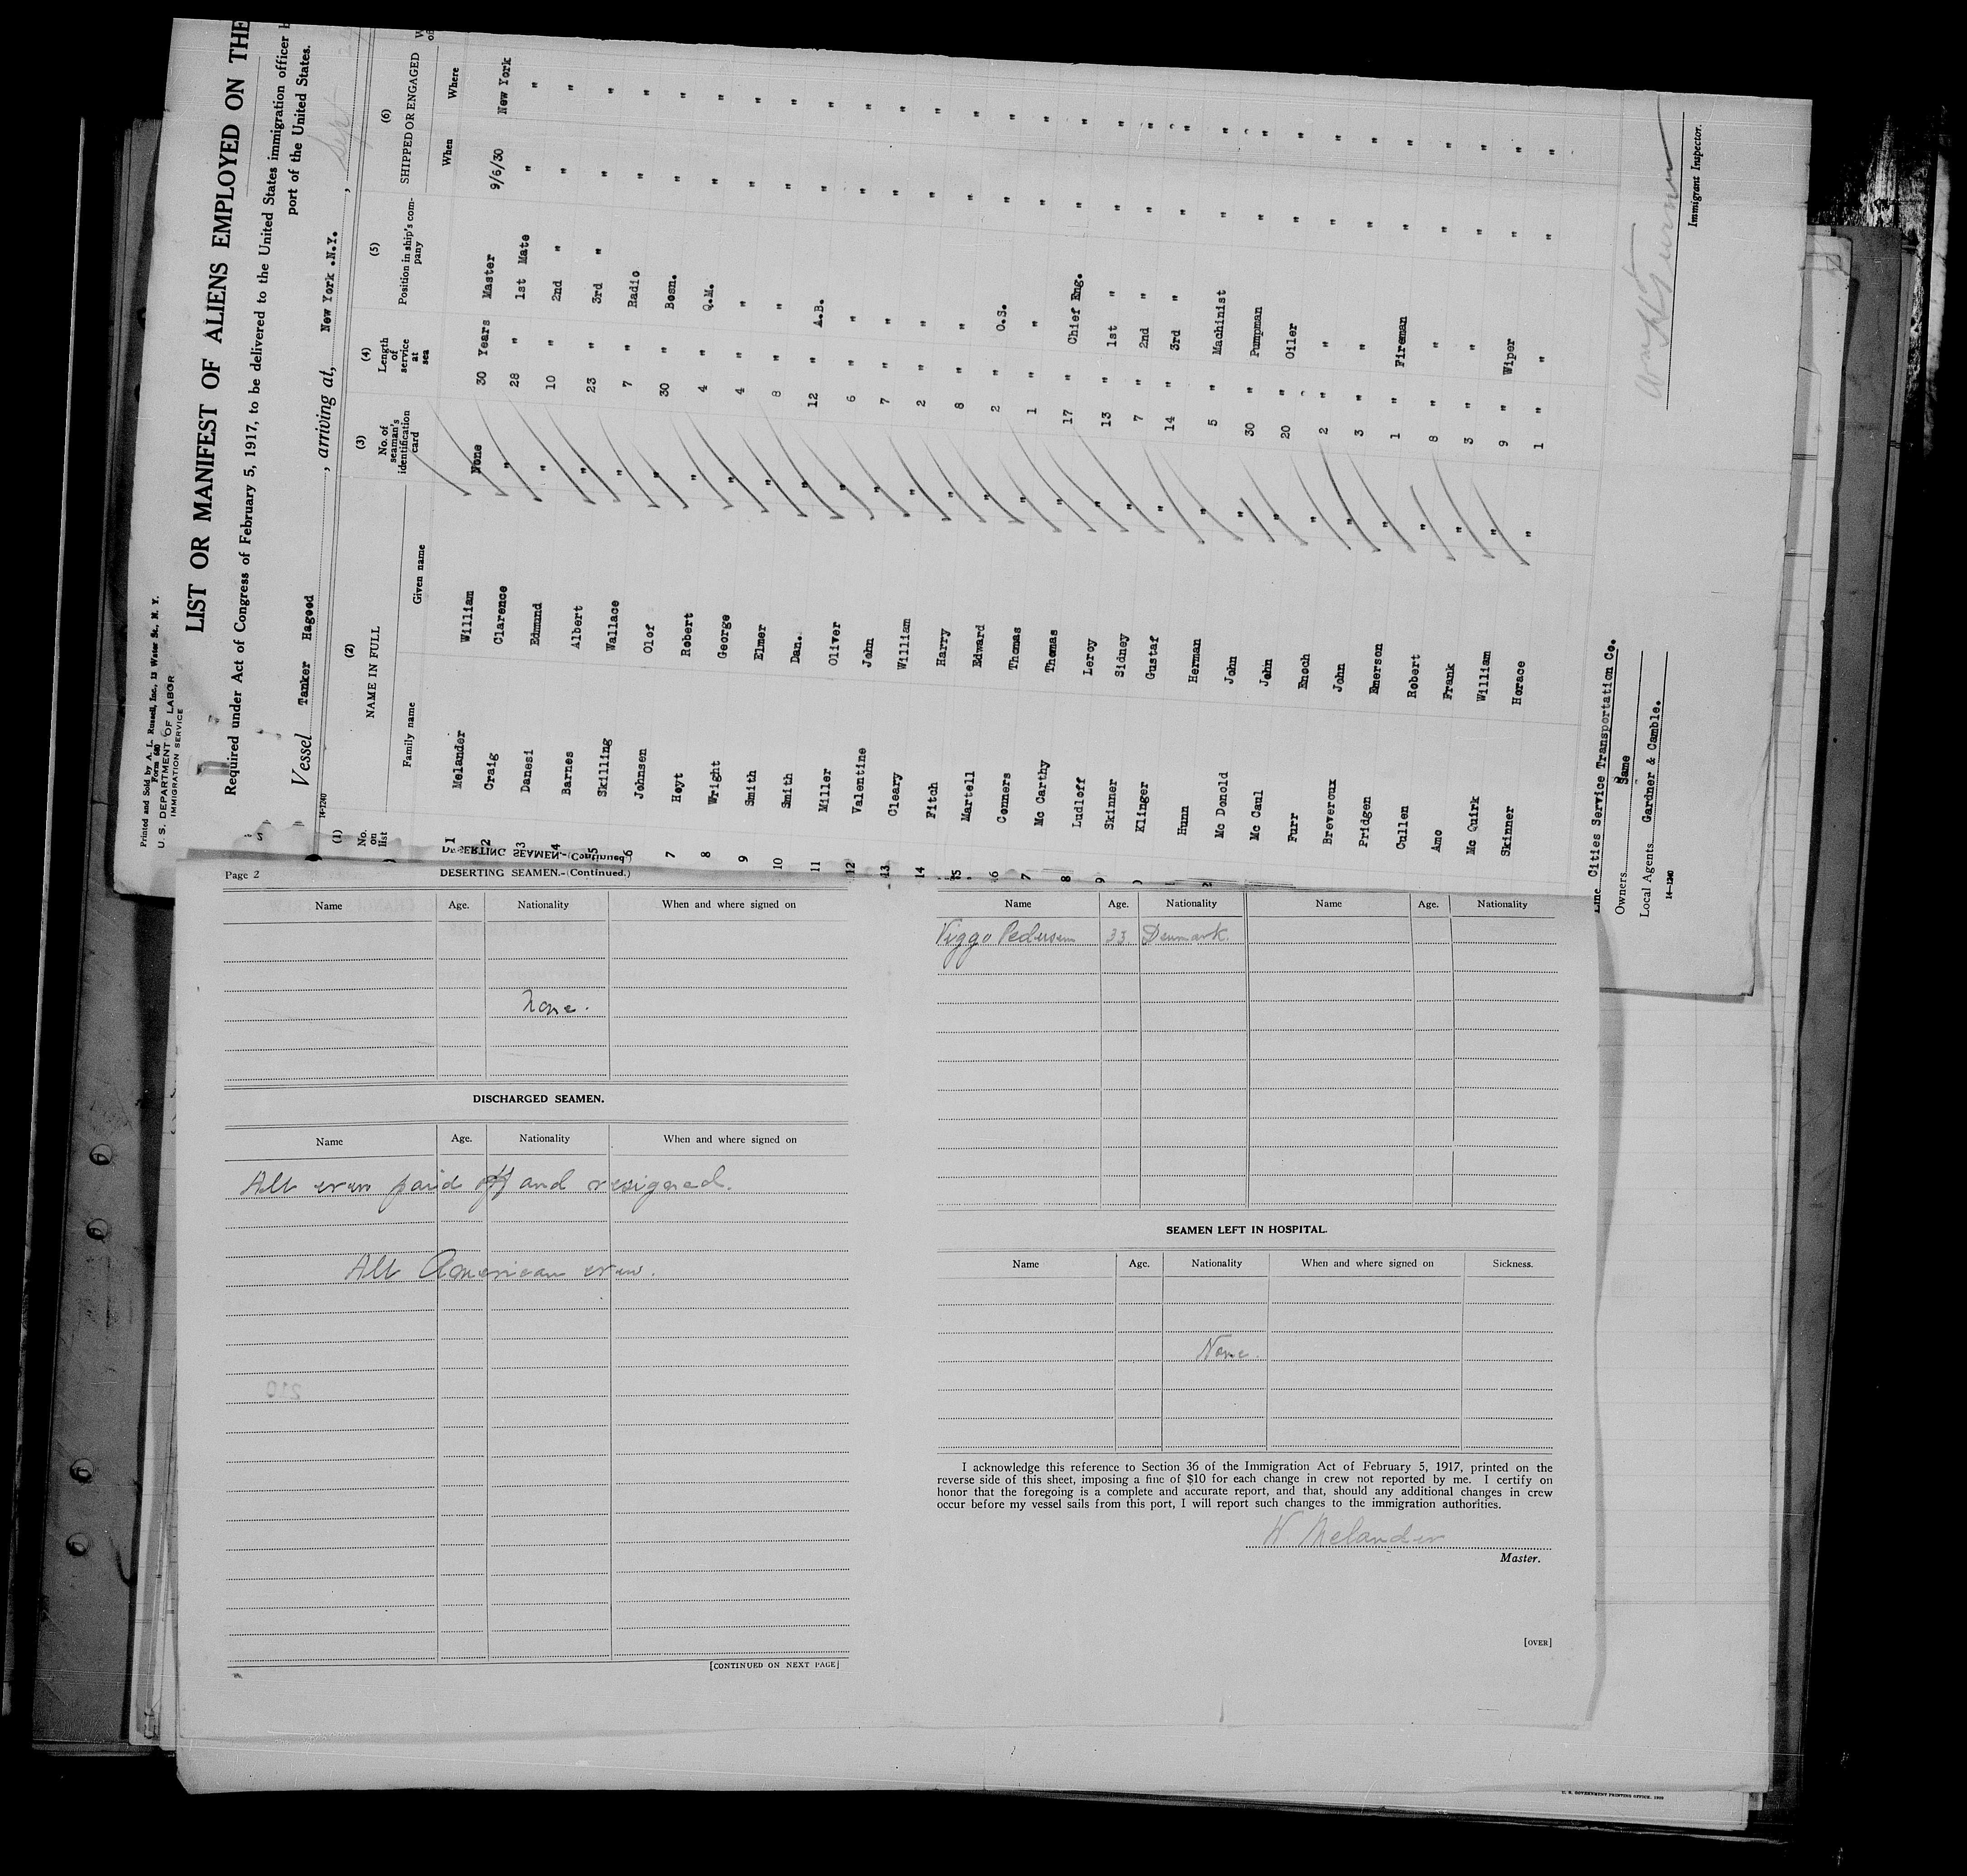 Printed and Sold by A. L. Russell, Inc., 13 Water St., N. Y.
Form 680
U. S. DEPARTMENT OF LABOR
IMMIGRATION SERVICE
LIST OR MANIFEST OF ALIENS EMPLOYED ON THE
Required under Act of Congress of February 5, 1917, to be delivered to the United States immigration officer
port of the United States.
Vessel Tanker Hagood, arriving at, New York .N.Y.,
14-1240
(1) (2) (3) (4) (5) (6)
No. on list NAME IN FULL No. of seaman's identification card Length of service at sea Position in ship's company SHIPPED OR ENGAGED
Family name Given name When Where
1 Melander William None 30 Years Master 9/6/30 New York
2 Craig Clarence " 28 " 1st Mate " "
3 Danesi Edmund " 10 " 2nd " " "
4 Barnes Albert " 23 " 3rd " " "
5 Skilling Wallace " 7 " Radio " "
6 Johnsen Olof " 30 " Bosn. " "
7 Hoyt Robert " 4 " Q.M. " "
8 Wright George " 4 " " " "
9 Smith Elmer " 8 " " " "
10 Smith Dan. " 12 " A.B. " "
11 Miller Oliver " 6 " " " "
12 Valentine John " 7 " " " "
13 Cleary William " 2 " " " "
14 Fitch Harry " 8 " " " "
15 Martell Edward " 2 " O.S. " "
16 Conners Thomas " 1 " " " "
7 Mc Carthy Thomas " 17 " Chief Eng. " "
8 Ludloff Leroy " 13 " 1st " " "
9 Skinner Sidney " 7 " 2nd " " "
Klinger Gustaf " 14 " 3rd " " "
Hunn Herman " 5 " Machinist " "
Mc Donold John " 30 " Pumpman " "
Mc Caul John " 20 " Oiler " "
Furr Enoch " 2 " " " "
Breveroux John " 3 " " " "
Pridgen Emerson " 1 " Fireman " "
Cullen Robert " 8 " " " "
Amo Frank " 3 " " " "
Mc Quirk William " 9 " Wiper " "
Skinner Horace " 1 " " " "
Line Cities Service Transportation Co.
Owners Same
Local Agents Gardner & Camble.
14-1240
Immigrant Inspector.
DESERTING SEAMEN.-(Continued)
Page 2
DESERTING SEAMEN.-(Continued.)
Name Age. Nationality When and where signed on
None.
DISCHARGED SEAMEN.
Name Age. Nationality When and where signed on
All crew paid off and resigned.
All American crew.
210
[CONTINUED ON NEXT PAGE]
Name Age. Nationality Name Age. Nationality
Viggo Pedersen 33 Denmark.
SEAMEN LEFT IN HOSPITAL.
Name Age. Nationality When and where signed on Sickness.
None.
I acknowledge this reference to Section 36 of the Immigration Act of February 5, 1917, printed on the
reverse side of this sheet, imposing a fine of $10 for each change in crew not reported by me. I certify on
honor that the foregoing is a complete and accurate report, and that, should any additional changes in crew
occur before my vessel sails from this port, I will report such changes to the immigration authorities.
W. Melander
Master.
[OVER]
U. S. GOVERNMENT PRINTING OFFICE.